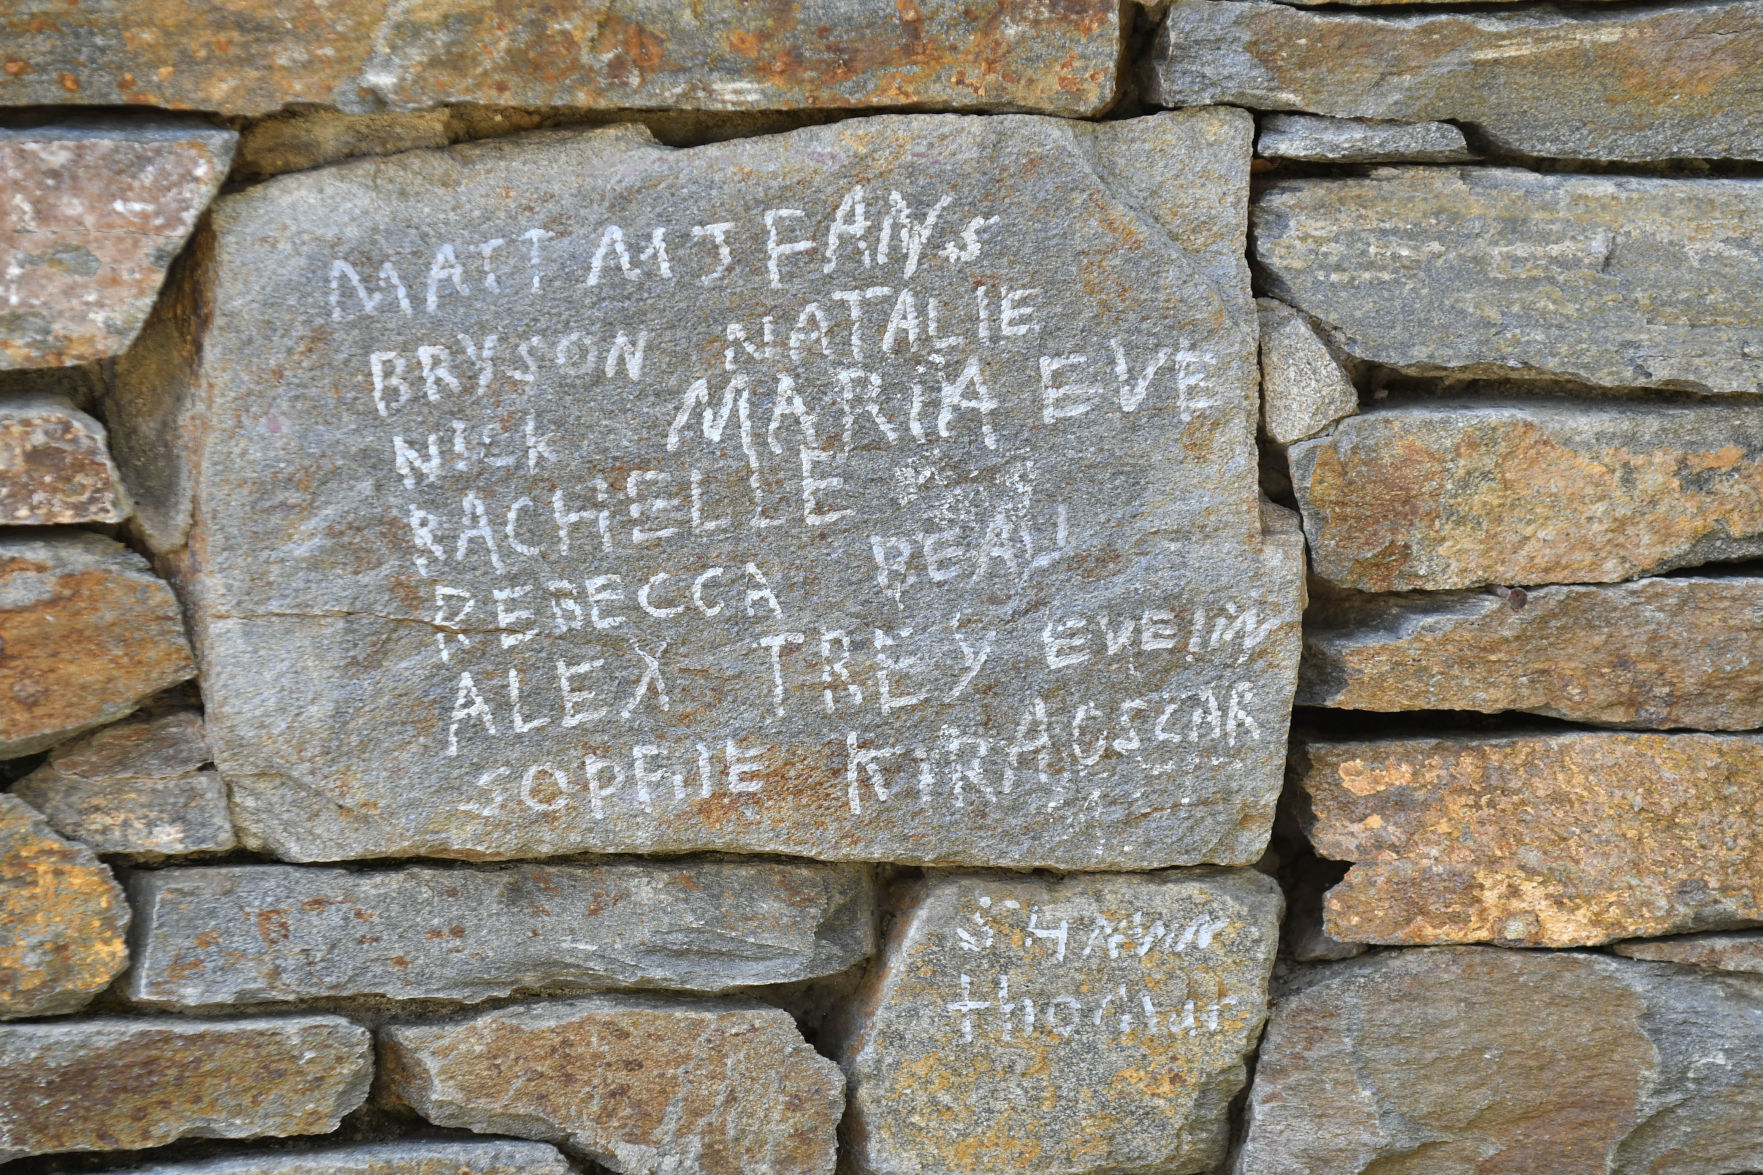 MATT MMJ FANS
BRYSON NATALIE
NICK MARIA EVE
RACHELLE
REBECCA BEAU
ALEX TREY EVELIN
SOPHIE KIRA OSCAR
SHAWN
thomas